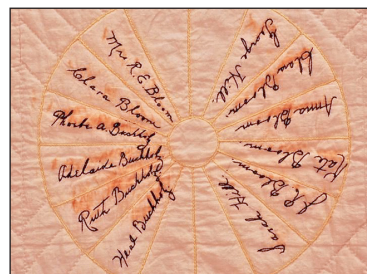 Mrs R. E. Bloom
Clara Bloom
Phoebe A. Buchholz
Adelaide Buchholz
Ruth Buchholz
Buchholz
George Hill
Bloom
Anna Bloom
Kate Bloom
Bloom
Sarah Hill